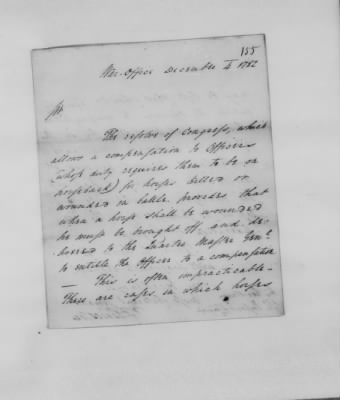 155
War-Office December 4 1782
Sir
The resolve of Congress, which
allows a compensation to Officers
(whose duty requires them to be on
horseback) for horses killed or
wounded in battle provides that
when a horse shall be wounded
he must be brought off and de-
livered to the Quarter Master Genl.
to entitle the Officer to a compensation
— This is often impracticable —
There are cases in which horses